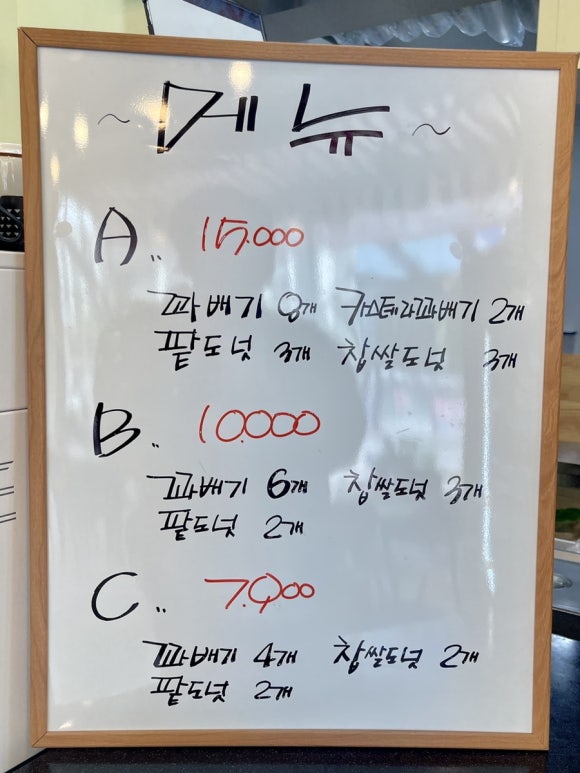 ~ 메뉴 ~
A.. 15.000
꽈배기 8개 카스테라꽈배기 2개
팥도넛 3개 찹쌀도넛 3개
B.. 10.000
꽈배기 6개 찹쌀도넛 3개
팥도넛 2개
C.. 7.000
꽈배기 4개 찹쌀도넛 2개
팥도넛 2개